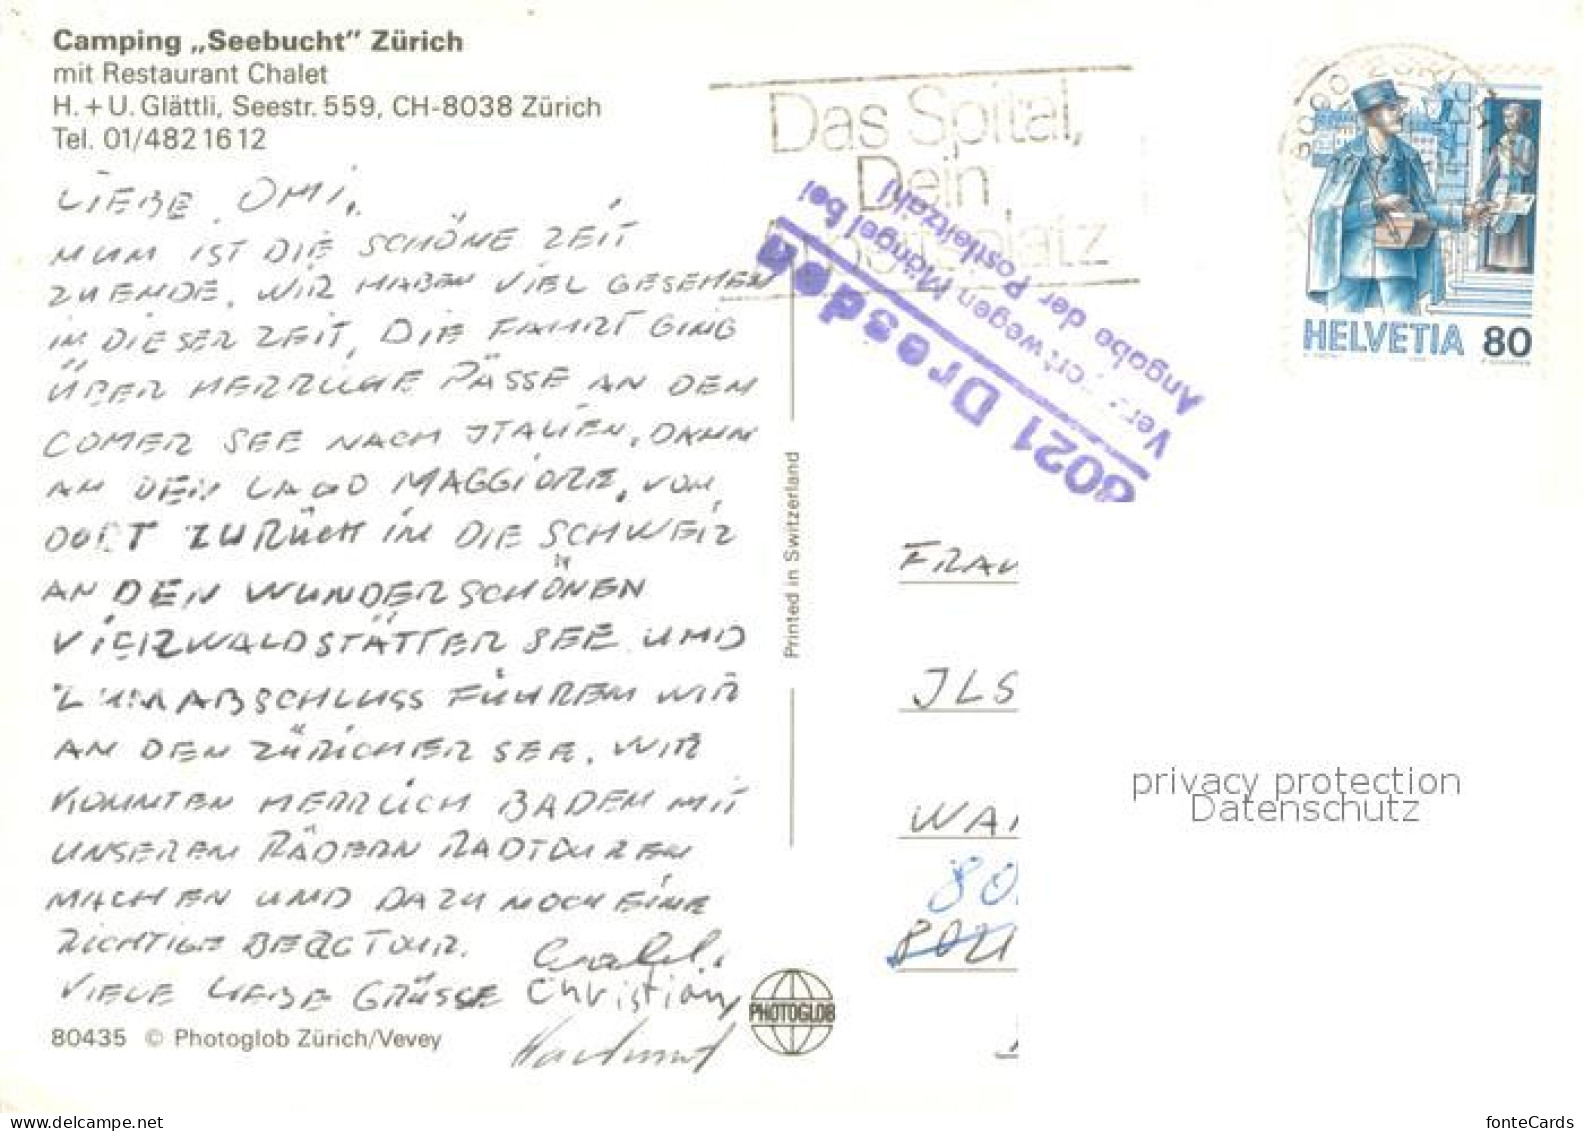 Camping „Seebucht" Zürich
mit Restaurant Chalet
H. + U. Glättli, Seestr. 559, CH-8038 Zürich
Tel. 01/482 16 12
LIEBE OMI,
NUN IST DIE SCHÖNE ZEIT
ZU ENDE, WIR HABEN VIEL GESEHEN
IN DIESER ZEIT, DIE FAHRT GING
ÜBER HERRLICHE PÄSSE AN DEM
COMER SEE NACH ITALIEN, DANN
AN DEN LAGO MAGGIORE, VON
DORT ZURÜCH IN DIE SCHWEIZ
AN DEN WUNDERSCHÖNEN
VIERWALDSTÄTTER SEE UND
ZUM ABSCHLUSS FUHREN WIR
AN DEN ZÜRICHER SEE. WIR
KONNTEN HERRLICH BADEN MIT
UNSEREN RÄDERN RADTOUREN
MACHEN UND DAZU NOCH EINE
RICHTIGE BERGTOUR.
VIELE LIEBE GRÜSSE Christian
Hartmut
80435 © Photoglob Zürich/Vevey
PHOTOGLOB
Printed in Switzerland
Das Spital,
Dein
8021 Dresden
wegen Mängel bei
Angabe der Postleitzahl
HELVETIA 80
FRAU
JLS
WA
80
8021
privacy protection
Datenschutz
delcampe.net
fonteCards